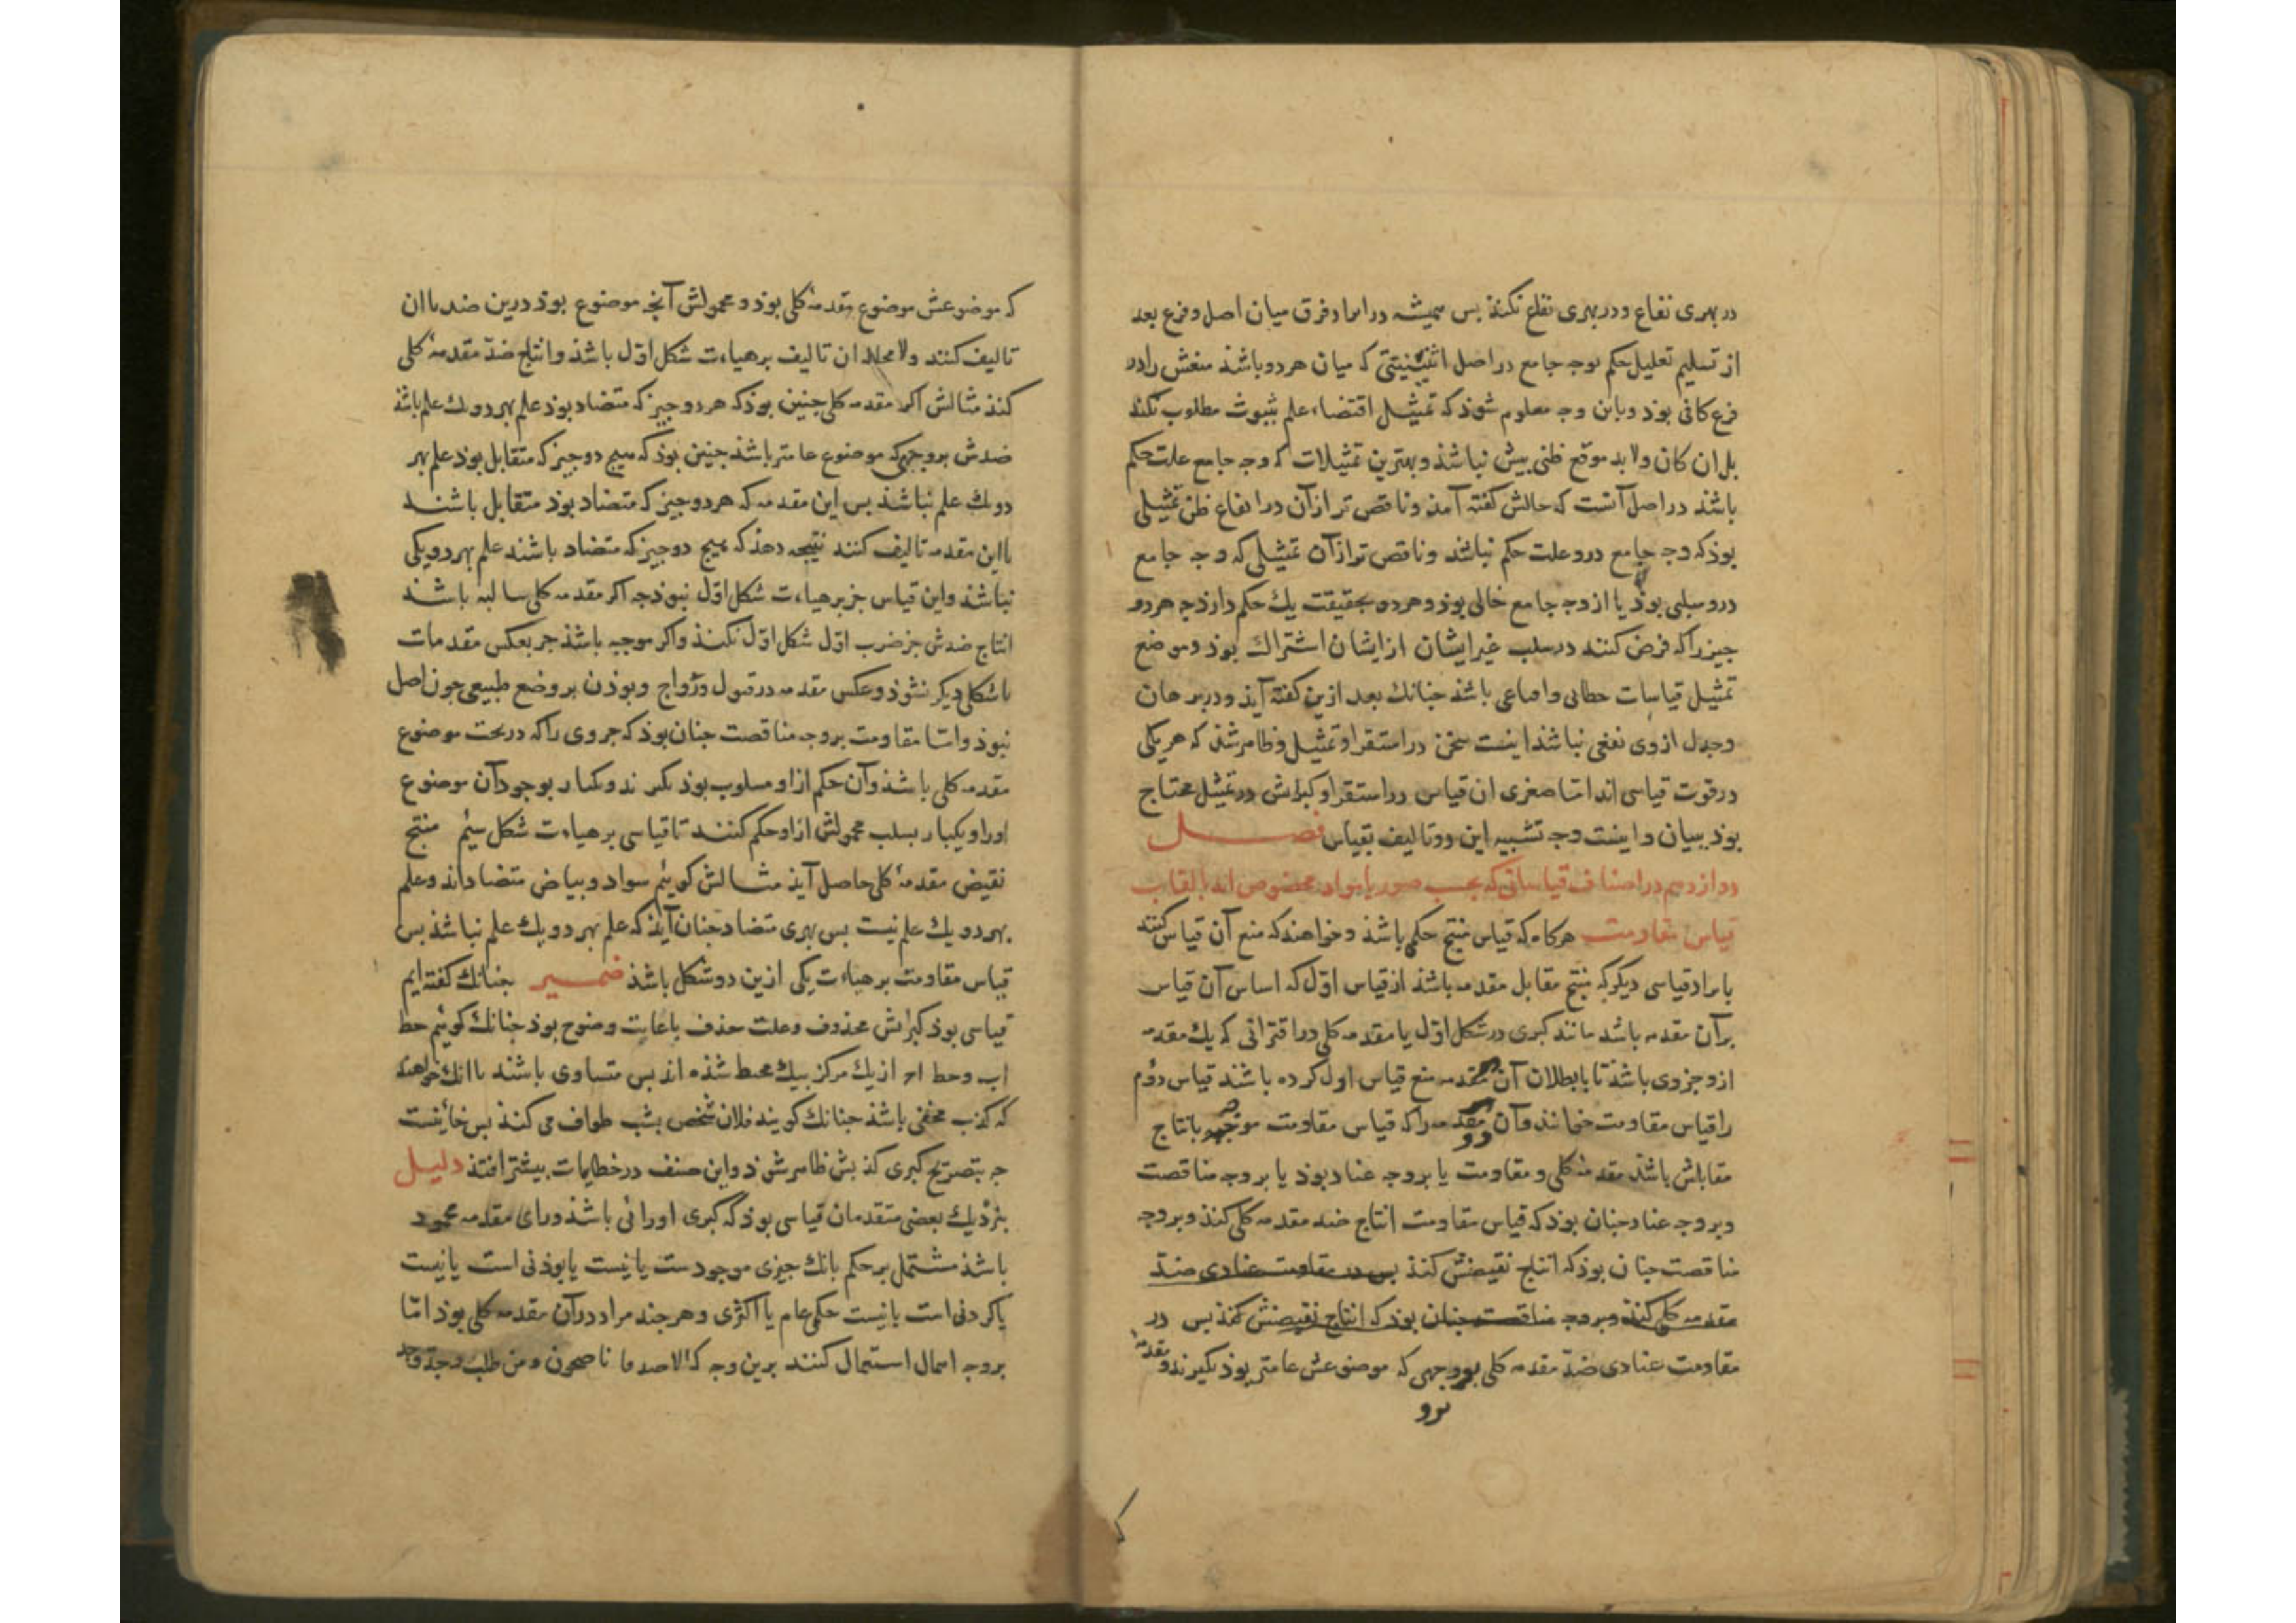 در بهری نفاع و در بهری نفاع نکند بس همیشه در ایراد فرق میان اصل و فرع بعد
از تسلیم تعلیل حکم بوجه جامع در اصل اثنینیتی که میان هر دو باشذ منعش را در
فرع کافی بوذ و باین وجه معلوم شوذ که تمثیل اقتضاء علم بثبوت مطلوب نکند
بل ان کان ولا بد موقع ظنی بیش نباشذ و بهترین تمثیلات که وجه جامع علت حکم
باشذ در اصل آنست که حالش کفته آمذ و ناقص تر از آن در ایقاع ظن تمثیلی
بوذ که وجه جامع درو علت حکم نباشد و ناقص تر از آن تمثیلی که وجه جامع
درو سلبی بوذ یا از وجه جامع خالی بوذ و هر دو بحقیقت یك حکم دارذ چه هر دو
جیز را که فرض کنند در سلب غیر ایشان از ایشان اشتراك بوذ و موضع
تمثیل قیاسات خطابی و اقناعی باشذ جنانك بعد ازین کفته آیذ و در برهان
وجدل ازوی نفعی نباشذ اینست سخن در استقرا و تمثیل و ظاهر شذ که هر یکی
در قوت قیاسی اند اما صغری ان قیاس در استقرا و کبراش در تمثیل محتاج
بوذ ببیان و اینست وجه تشبیه این دو تالیف بقیاس فصل
دوازدهم در اصناف قیاساتی که بحسب صور یا مواد مخصوص اند بالقاب
قیاس مقاومت هرکاه که قیاس منتج حکمی باشذ و خواهند که منع آن قیاس کنند
بایراد قیاسی دیکر که منتج مقابل مقدمه باشذ از قیاس اول که اساس آن قیاس
بر آن مقدمه باشد مانند کبری در شکل اول یا مقدمه کلی در اقترانی که یك مقدمه
ازو جزوی باشذ تا بابطلان آن مقدمه منع قیاس اول کرده باشند قیاس دوم
را قیاس مقاومت خوانند و آن مقدمه را که قیاس مقاومت بانتاج
مقابلش باشذ مقدمهٔ کلی و مقاومت یا بروجه عناد بوذ یا بروجه مناقضت
و بروجه عناد جنان بوذ که قیاس مقاومت انتاج ضد مقدمه کلی کند و بروجه
مناقضت جنان بوذ که انتاج نقیضش کند بس در مقاومت عنادی ضد
مقدمه کلی کند و بروجه مناقضت جنان بوذ که انتاج نقیضش کند بس در
مقاومت عنادی ضد مقدمه کلی بروجهی که موضوعش عامتر بوذ بکیرند و مقدمهٔ
برو
که موضوعش موضوع مقدمهٔ کلی بوذ و محمولش آنجه موضوع بوذ درین ضد باان
تالیف کنند ولا محاله ان تالیف برهیاءت شکل اول باشذ و انتاج ضد مقدمهٔ کلی
کند مثالش اکر مقدمه کلی جنین بوذ که هر دو جیز که متضاد بوذ علم بهر دو یك علم باشذ
ضدش بروجهی که موضوع عامتر باشذ جنین بوذ که هیچ دو جیز که متقابل بوذ علم بهر
دو یك علم نباشذ بس این مقدمه که هر دو جیز که متضاد بوذ متقابل باشند
بااین مقدمه تالیف کنند نتیجه دهذ که هیج دو جیز که متضاد باشند علم بهر دو یکی
نباشذ و این قیاس جز برهیاءت شکل اول نبوذ جه اکر مقدمه کلی سالبه باشذ
انتاج ضدش جز ضرب اول شکل اول نکنذ و اکر موجبه باشذ جز بعکس مقدمات
باشکلی دیکر نشوذ و عکس مقدمه در قبول و رواج و بوذن بر وضع طبیعی جون اصل
نبوذ و اما مقاومت بروجه مناقضت جنان بوذ که جزوی را که در تحت موضوع
مقدمه کلی باشذ و آن حکم ازاو مسلوب بوذ بکیرند و یکبار بوجود آن موضوع
اورا و یکبار بسلب محمولش ازاو حکم کنند تا قیاسی برهیاءت شکل سیم منتج
نقیض مقدمهٔ کلی حاصل آیذ مثالش کوئیم سواد و بیاض متضاداند و علم
بهر دو یك علم نیست بس بهری متضاد جنان آیذ که علم بهر دو یك علم نباشذ بس
قیاس مقاومت برهیاءت یکی ازین دو شکل باشذ ضمیر جنانك کفته ایم
قیاسی بوذ کبراش محذوف و علت حذف یا غایت وضوح بوذ جنانك کوئیم خط
اب و خط اح از یك مرکز بیك محیط شذه اند بس متساوی باشند یا انك خواهند
که کذب مخفی باشذ جنانك کویند فلان شخص بشب طواف می کند بس خائنست
جه بتصریح کبری کذبش ظاهر شوذ و این صنف در خطابیات بیشتر افتذ دلیل
بنزدیك بعضی متقدمان قیاسی بوذ که کبری اورائی باشذ ورای مقدمه محمود
باشذ مشتمل بر حکم بانك جیزی موجودست یا نیست یا بوذنی است یا نیست
یا کردنی است یا نیست حکمی عام یا اکثری و هرجند مراد در آن مقدمه کلی بوذ اما
بروجه اهمال استعمال کنند برین وجه که الاصدقا ناصحون و من طلب وجد و جد